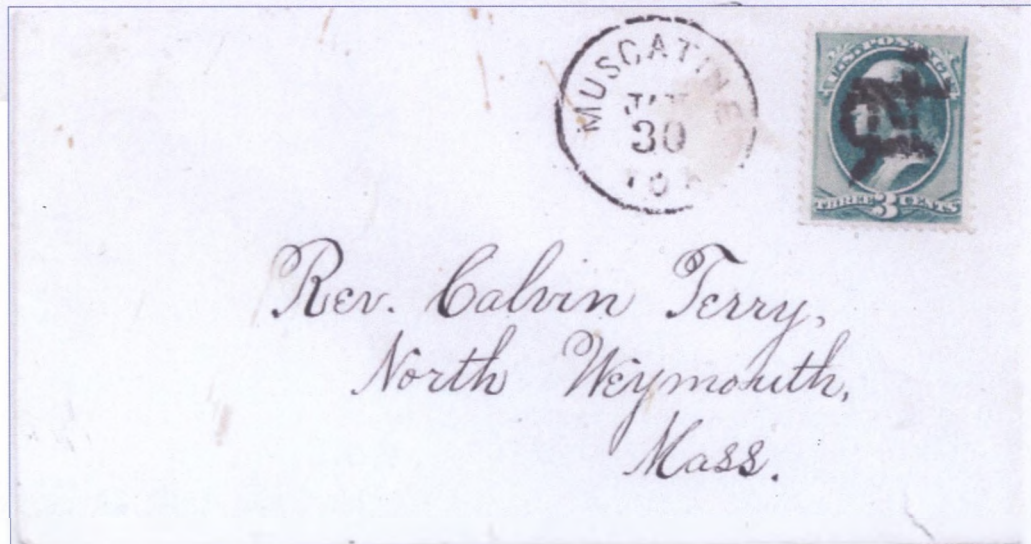 MUSCATINE
30
U.S. POSTAGE
THREE 3 CENTS
Rev. Calvin Terry,
North Weymouth,
Mass.